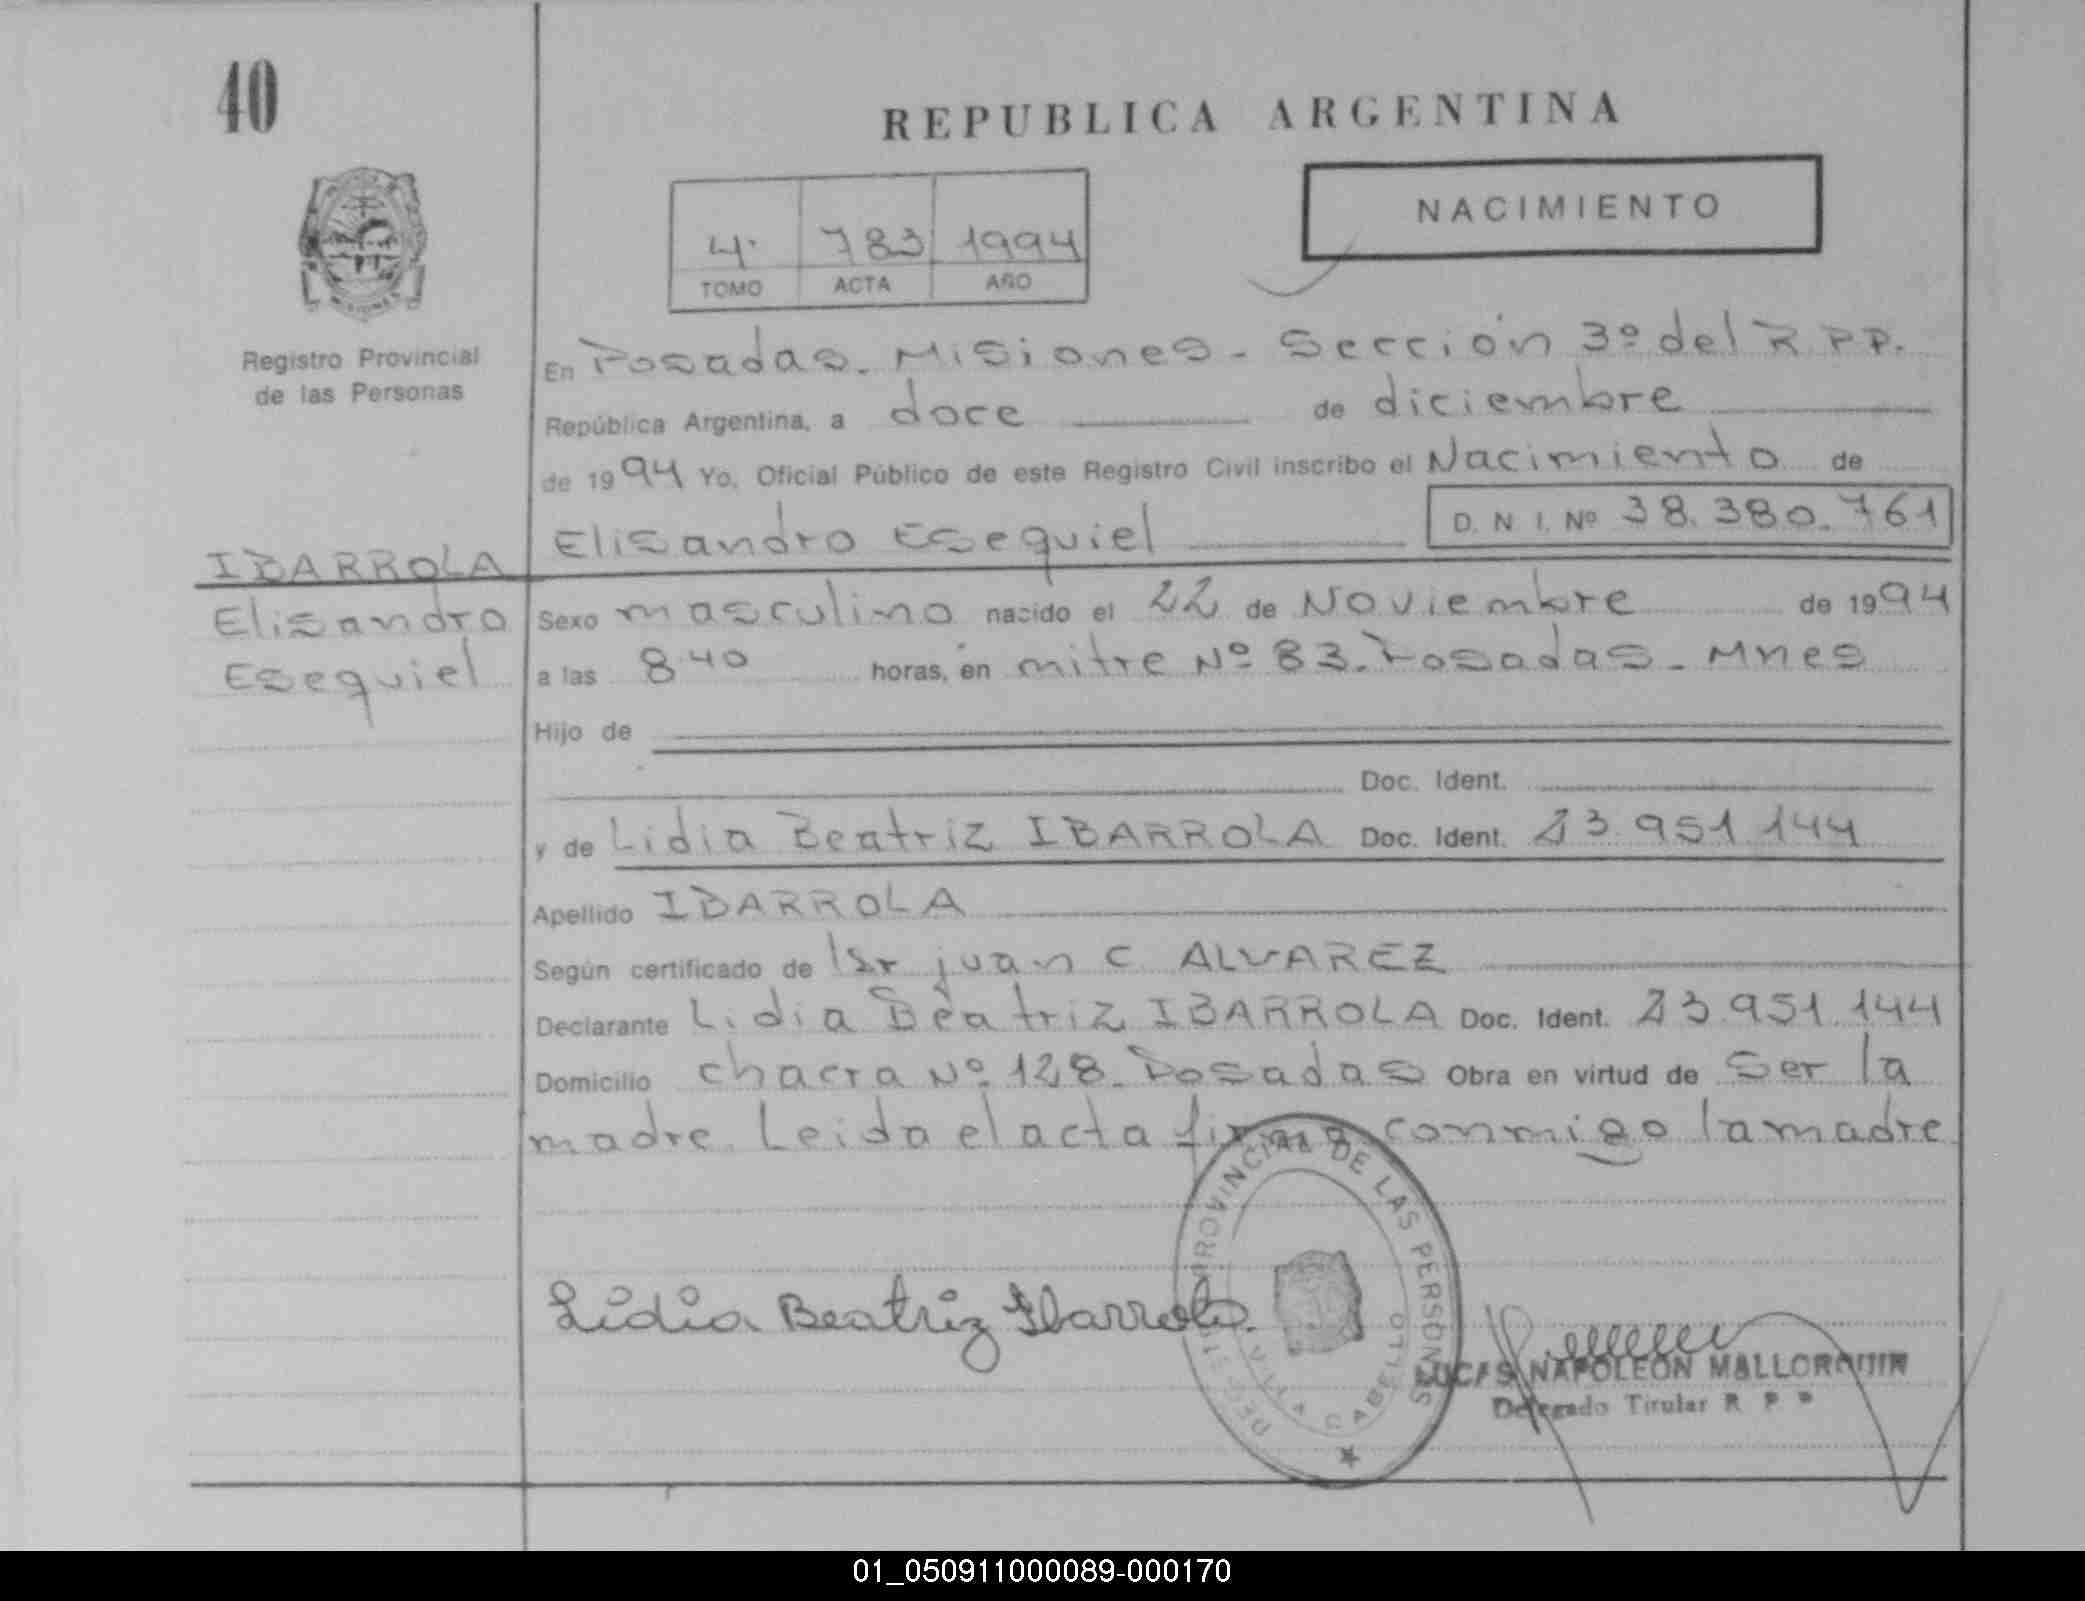 40
REPUBLICA ARGENTINA
NACIMIENTO
4. 783 1994
TOMO ACTA AÑO
Registro Provincial
de las Personas
En Posadas. Misiones - Sección 3º del R.P.P.
República Argentina, a doce de diciembre
de 1994 Yo, Oficial Público de este Registro Civil inscribo el Nacimiento de
Elisandro Esequiel D. N I. Nº 38.380.761
IBARROLA
Elisandro
Esequiel
Sexo masculino nacido el 22 de Noviembre de 1994
a las 8.40 horas, en mitre Nº 83. Posadas - Mnes
Hijo de
Doc. Ident.
y de Lidia Beatriz IBARROLA Doc. Ident. 23.951.144
Apellido IBARROLA
Según certificado de juan C ALVAREZ
Declarante Lidia Beatriz IBARROLA Doc. Ident. 23.951.144
Domicilio chacra Nº 128. Posadas Obra en virtud de Ser la
madre. Leida el acta firma conmigo la madre
PROVINCIAL DE LAS PERSONAS
VILLA CABELLO
Lidia Beatriz Ibarrola
LUCAS NAPOLEON MALLORQUIN
Delegado Titular R. P. P
01_050911000089-000170